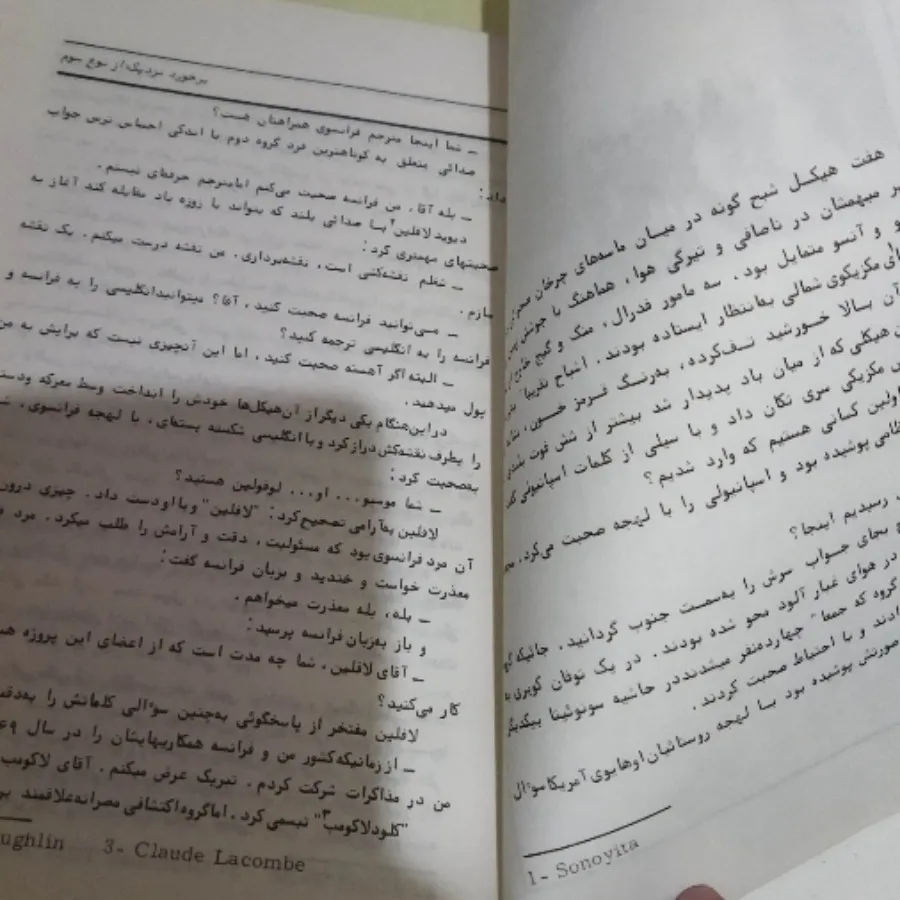 هفت هیکل شبح گونه در میان ماسه‌های چرخان
میهمتان در ناصافی و تیرگی هوا، هماهنگ با جوشش
و آنسو متمایل بود. سه مامور فدرال، منگ و گیج
مکزیکوی شمالی به‌انتظار ایستاده بودند. اشباح تقریبا
آن بالا خورشید تف‌کرده، به‌رنگ قرمز خون،
هیکلی که از میان باد پدیدار شد بیشتر از شش فوت بلندی
مکزیکی سری تکان داد و با سیلی از کلمات اسپانیولی
اولین کسانی هستیم که وارد شدیم؟
پوشیده بود و اسپانیولی را با لهجه صحبت می‌کرد،
رسیدیم اینجا؟
بجای جواب سرش را به‌سمت جنوب گردانید، جائیکه
در هوای غبار آلود محو شده بودند. در یک توفان کویری
گروه که جمعا" چهارده‌نفر میشدند در حاشیه سونوئیتا بیکدیگر
و با احتیاط صحبت کردند.
صورتش پوشیده بود با لهجه روستاشیان اوهایوی آمریکا سوآل
1- Sonoyita
برخورد نزدیک از نوع سوم
ـ شما اینجا مترجم فرانسوی همراهتان هست؟
صدائی متعلق به کوتاهترین فرد گروه دوم با اندکی احساس ترس جواب
داد:
ـ بله آقا. من فرانسه صحبت می‌کنم اما مترجم حرفه‌ای نیستم.
دیوید لافلین۲ با صدائی بلند که بتواند با زوزه باد مقابله کند آغاز به
صحبتهای مهمتری کرد:
ـ شغلم نقشه‌کشی است، نقشه‌برداری. من نقشه درست میکنم. یک نقشه
سازم.
ـ می‌توانید فرانسه صحبت کنید، آقا؟ میتوانید انگلیسی را به فرانسه و
فرانسه را به انگلیسی ترجمه کنید؟
ـ البته اگر آهسته صحبت کنید، اما این آنچیزی نیست که برایش به من
پول میدهند.
در این‌هنگام یکی دیگر از آن‌هیکل‌ها خودش را انداخت وسط معرکه و
را بطرف نقشه‌کش دراز کرد و با انگلیسی شکسته بسته‌ای، با لهجه فرانسوی،
به‌صحبت کرد:
ـ شما موسیو... او... لوفولین هستید؟
لافلین به‌آرامی تصحیح کرد: "لافلین" و با او دست داد. چیزی درون
آن مرد فرانسوی بود که مسئولیت، دقت و آرامش را طلب میکرد. مرد
معذرت خواست و خندید و بزبان فرانسه گفت:
ـ بله، بله معذرت میخواهم.
و باز به‌زبان فرانسه پرسید:
ـ آقای لافلین، شما چه مدت است که از اعضای این پروژه
کار می‌کنید؟
لافلین مفتخر از پاسخگوئی به‌چنین سوآلی کلماتش را
ـ از زمانیکه کشور من و فرانسه همکاریهایشان را در سال
من در مذاکرات شرکت کردم. تبریک عرض میکنم. آقای
"کلود لاکومب۳" تبسمی کرد. اما گروه اکتشافی مصرانه علاقمند
ughlin 3- Claude Lacombe